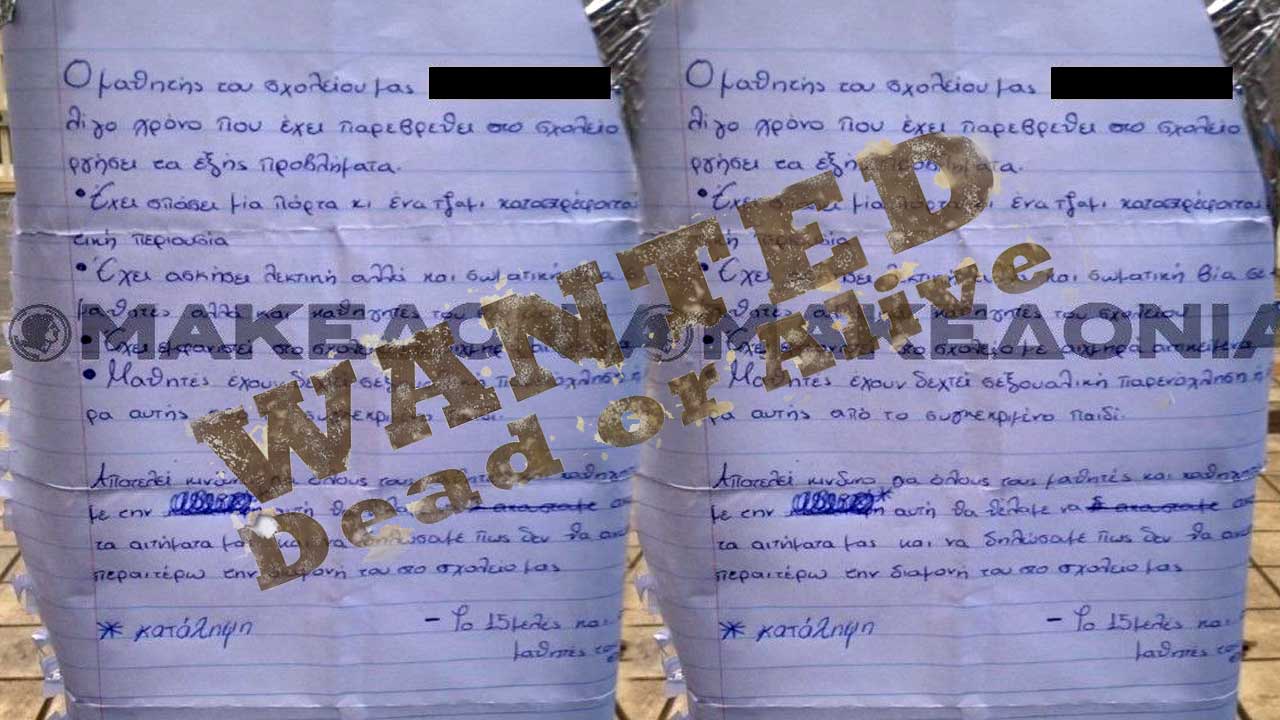 Ο μαθητής του σχολείου μας
λίγο χρόνο που έχει παρεβρεθει στο σχολείο
ργήσει τα εξής προβλήματα.
• Έχει σπάσει μία πόρτα κι ένα τζαμι καταστρέφοντα
τική περιουσία
• Έχει ασκήσει λεκτική αλλά και σωματική
μαθητές αλλά και καθηγητές του
ΜΑΚΕΔΟΝΙΑ
• Έχει εμφανιστεί στο
• Μαθητές έχουν δεχτεί σεξουαλική παρενόχληση ή
ρα αυτής
Αποτελεί κίνδυνο για όλους τους
με την αυτή θα
τα αιτήματα μας και να δηλώσουμε πως δεν θα
περαιτέρω την διαμονή του στο σχολείο μας
* κατάληψη
- Το 15μελές και
μαθητές
WANTED
Dead or Alive
Ο μαθητής του σχολείου μας
λίγο χρόνο που έχει παρεβρεθει στο σχολείο
ργήσει τα εξής προβλήματα.
• Έχει μία πόρτα ένα τζαμι καταστρέφοντα
τική περιουσία
• Έχει λεκτική και σωματική βία σε
μαθητές αλλά καθηγητές του σχολείου
ΜΑΚΕΔΟΝΙΑ
στο σχολείο με αιχμηρα αντικείμενα
Μαθητές έχουν δεχτεί σεξουαλική παρενόχληση ή
ρα αυτής από το συγκεκριμένο παιδί.
Αποτελεί κίνδυνο για όλους τους μαθητές και καθηγητ
με την * αυτή θα θέλαμε να
τα αιτήματα μας και να δηλώσουμε πως δεν θα
περαιτέρω την διαμονή του στο σχολείο μας
* κατάληψη
- Το 15μελές και
μαθητές του